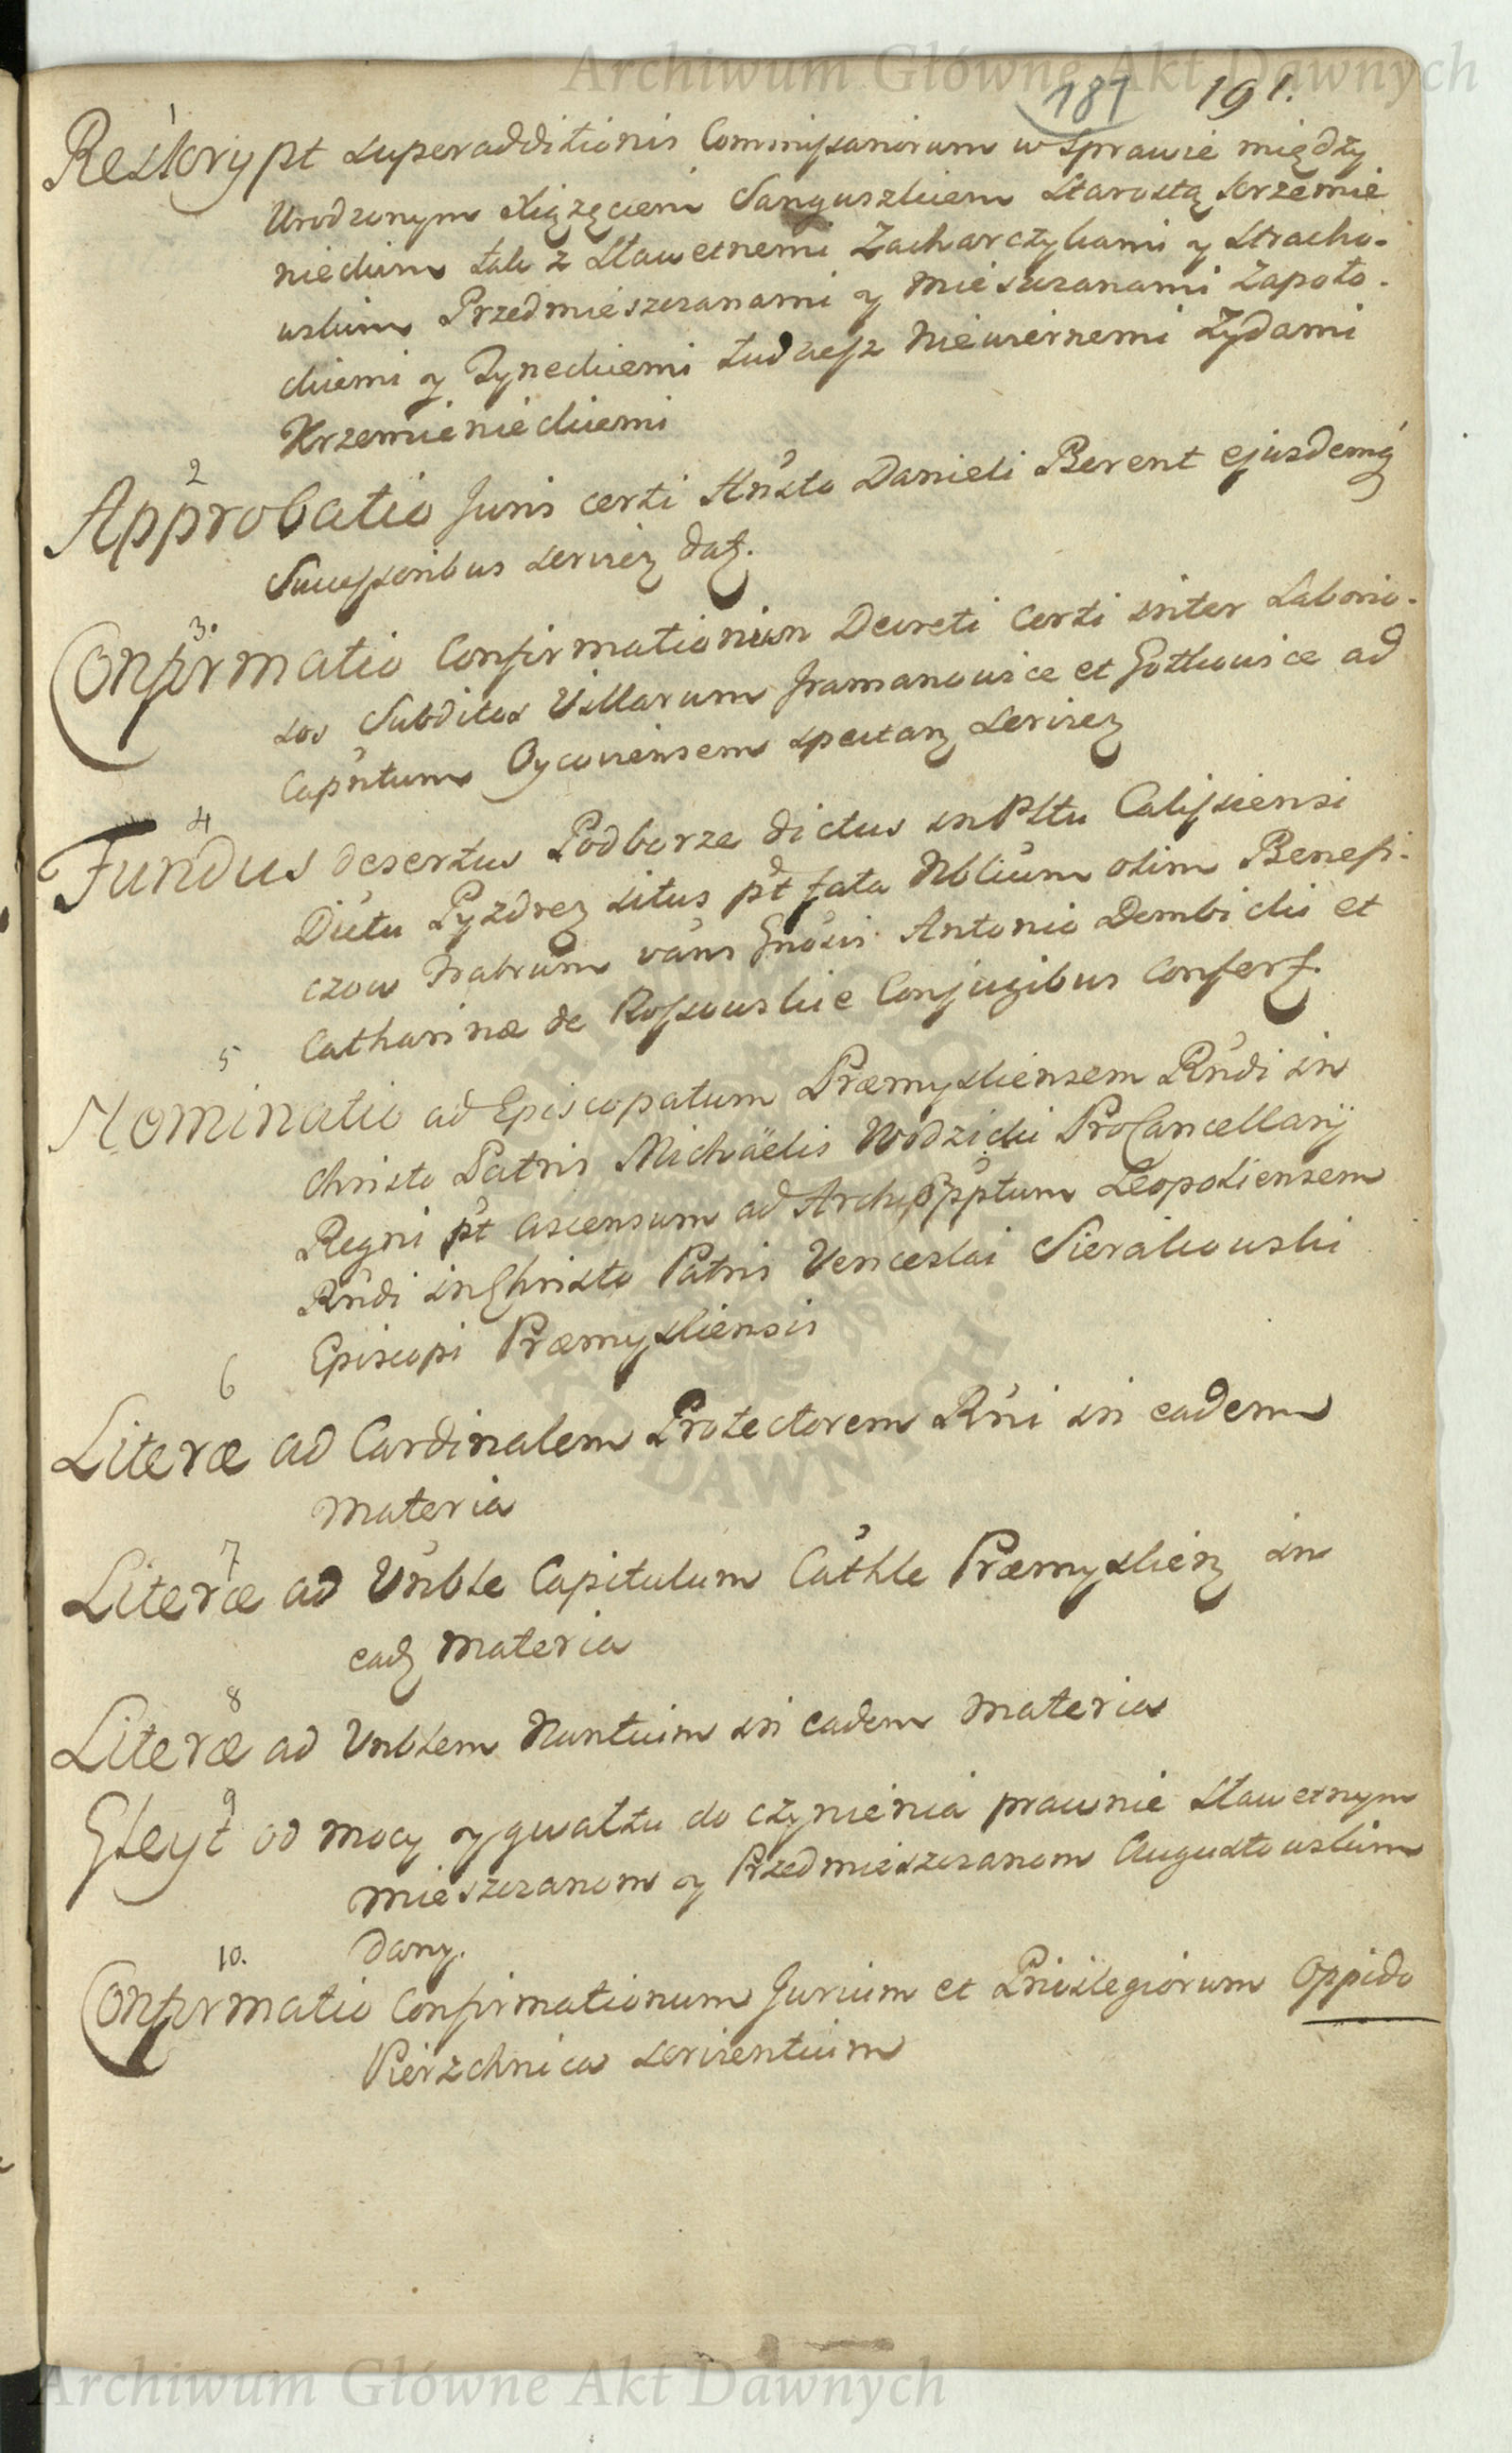 Archiwum Główne Akt Dawnych
181 191.
1
Reskrypt superadditionis Commissariorum w Sprawie między
Urodzonym Xiążęciem Sanguszkiem Starostą krzemie
nieckim tak z Sławetnemi Zacharczykami y Stracho-
wskim Przedmieszczanami y Mieszczanami Zapoto-
ckiemi y Ryneckiemi tudziesz Niewiernemi Żydami
Krzemienieckiemi
2
Approbatio Juris certi Hnsto Danieli Berent ejusdemq
Successoribus servien dat.
3.
Confirmatio Confirmationum Decreti certi inter Laborio-
sos Subditos Villarum Jramanowice et Gotkowice ad
Capntum Oycoviensem spectan servien
4
Fundus desertus Podborze dictus in Pltu Calissiensi
Dictu Pyzdren situs pt fata Nblium olim Benefi-
czow Fratrum vans Gnosis Antonio Dembicki et
Catharinæ de Rossowskie Conjugibus Confert.
5
Nominatio ad Episcopatum Præmysliensem Rndi in
Christo Patris Michaëlis Wodzicki ProCancellarij
Regni pt ascensum ad ArchiEpptum Leopoliensem
Rndi in Christo Patris Venceslai Sierakowski
Episcopi Præmysliensis
6
Literæ ad Cardinalem Protectorem Rni in eadem
Materia
7
Literæ ad Vnble Capitulum Cathle Præmyslien in
ead Materia
8
Literæ ad Vnblem Nuntium in eadem Materia
9
Gleyt od mocy y gwałtu do czynienia prawnie Sławetnym
Mieszczanom y Przedmieszczanom Augustowskim
Dany.
10.
Confirmatio Confirmationum Jurium et Privilegiorum Oppido
Pierzchnica servientium
Archiwum Główne Akt Dawnych